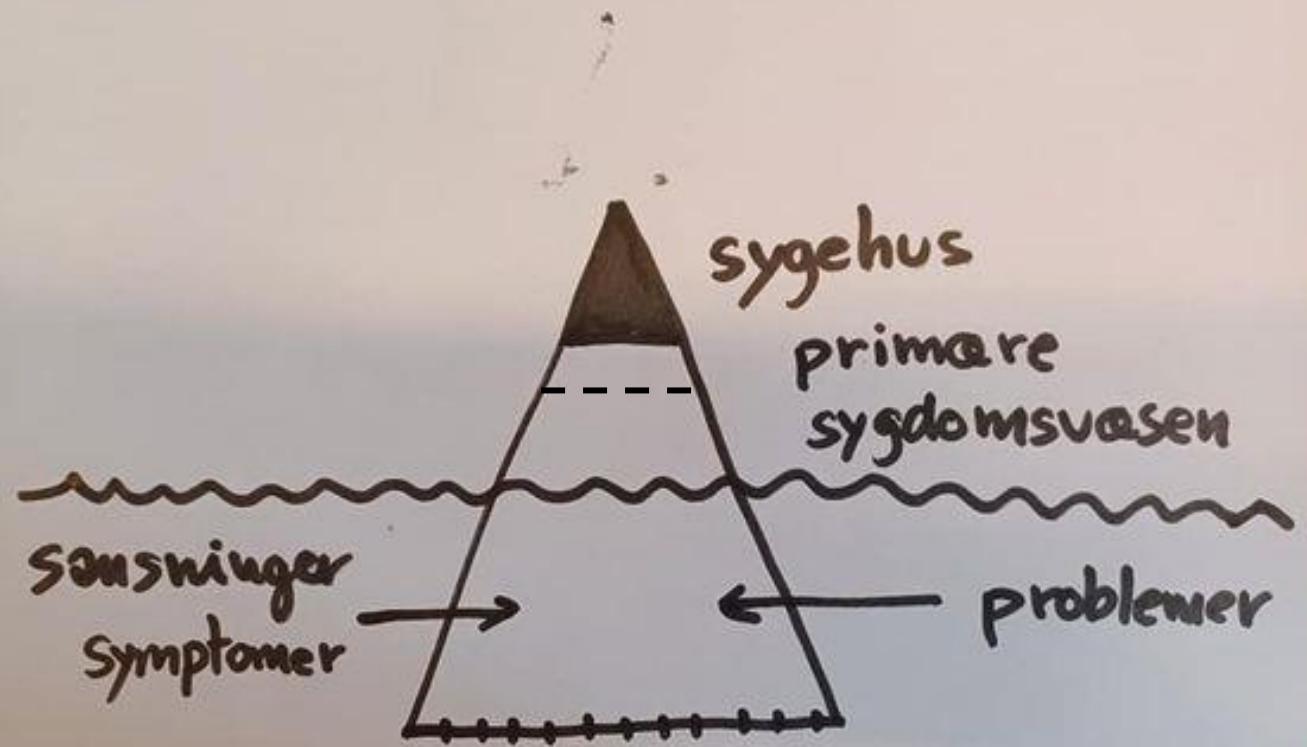 sygehus
primære
sygdomsvæsen
sansninger
symptomer
problemer